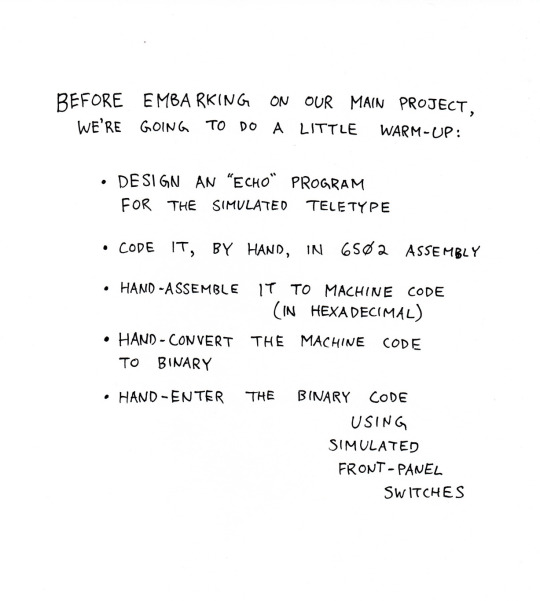 BEFORE EMBARKING ON OUR MAIN PROJECT,
WE'RE GOING TO DO A LITTLE WARM-UP:
• DESIGN AN "ECHO" PROGRAM
FOR THE SIMULATED TELETYPE
• CODE IT, BY HAND, IN 65Ø2 ASSEMBLY
• HAND-ASSEMBLE IT TO MACHINE CODE
(IN HEXADECIMAL)
• HAND-CONVERT THE MACHINE CODE
TO BINARY
• HAND-ENTER THE BINARY CODE
USING
SIMULATED
FRONT-PANEL
SWITCHES